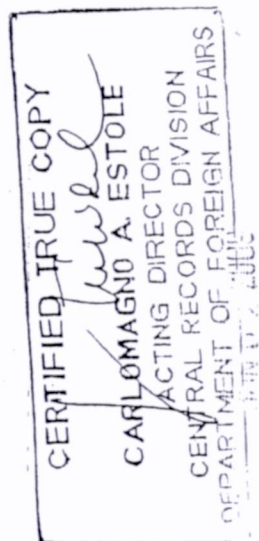 CERTIFIED TRUE COPY
CARLOMAGNO A. ESTOLE
ACTING DIRECTOR
CENTRAL RECORDS DIVISION
DEPARTMENT OF FOREIGN AFFAIRS